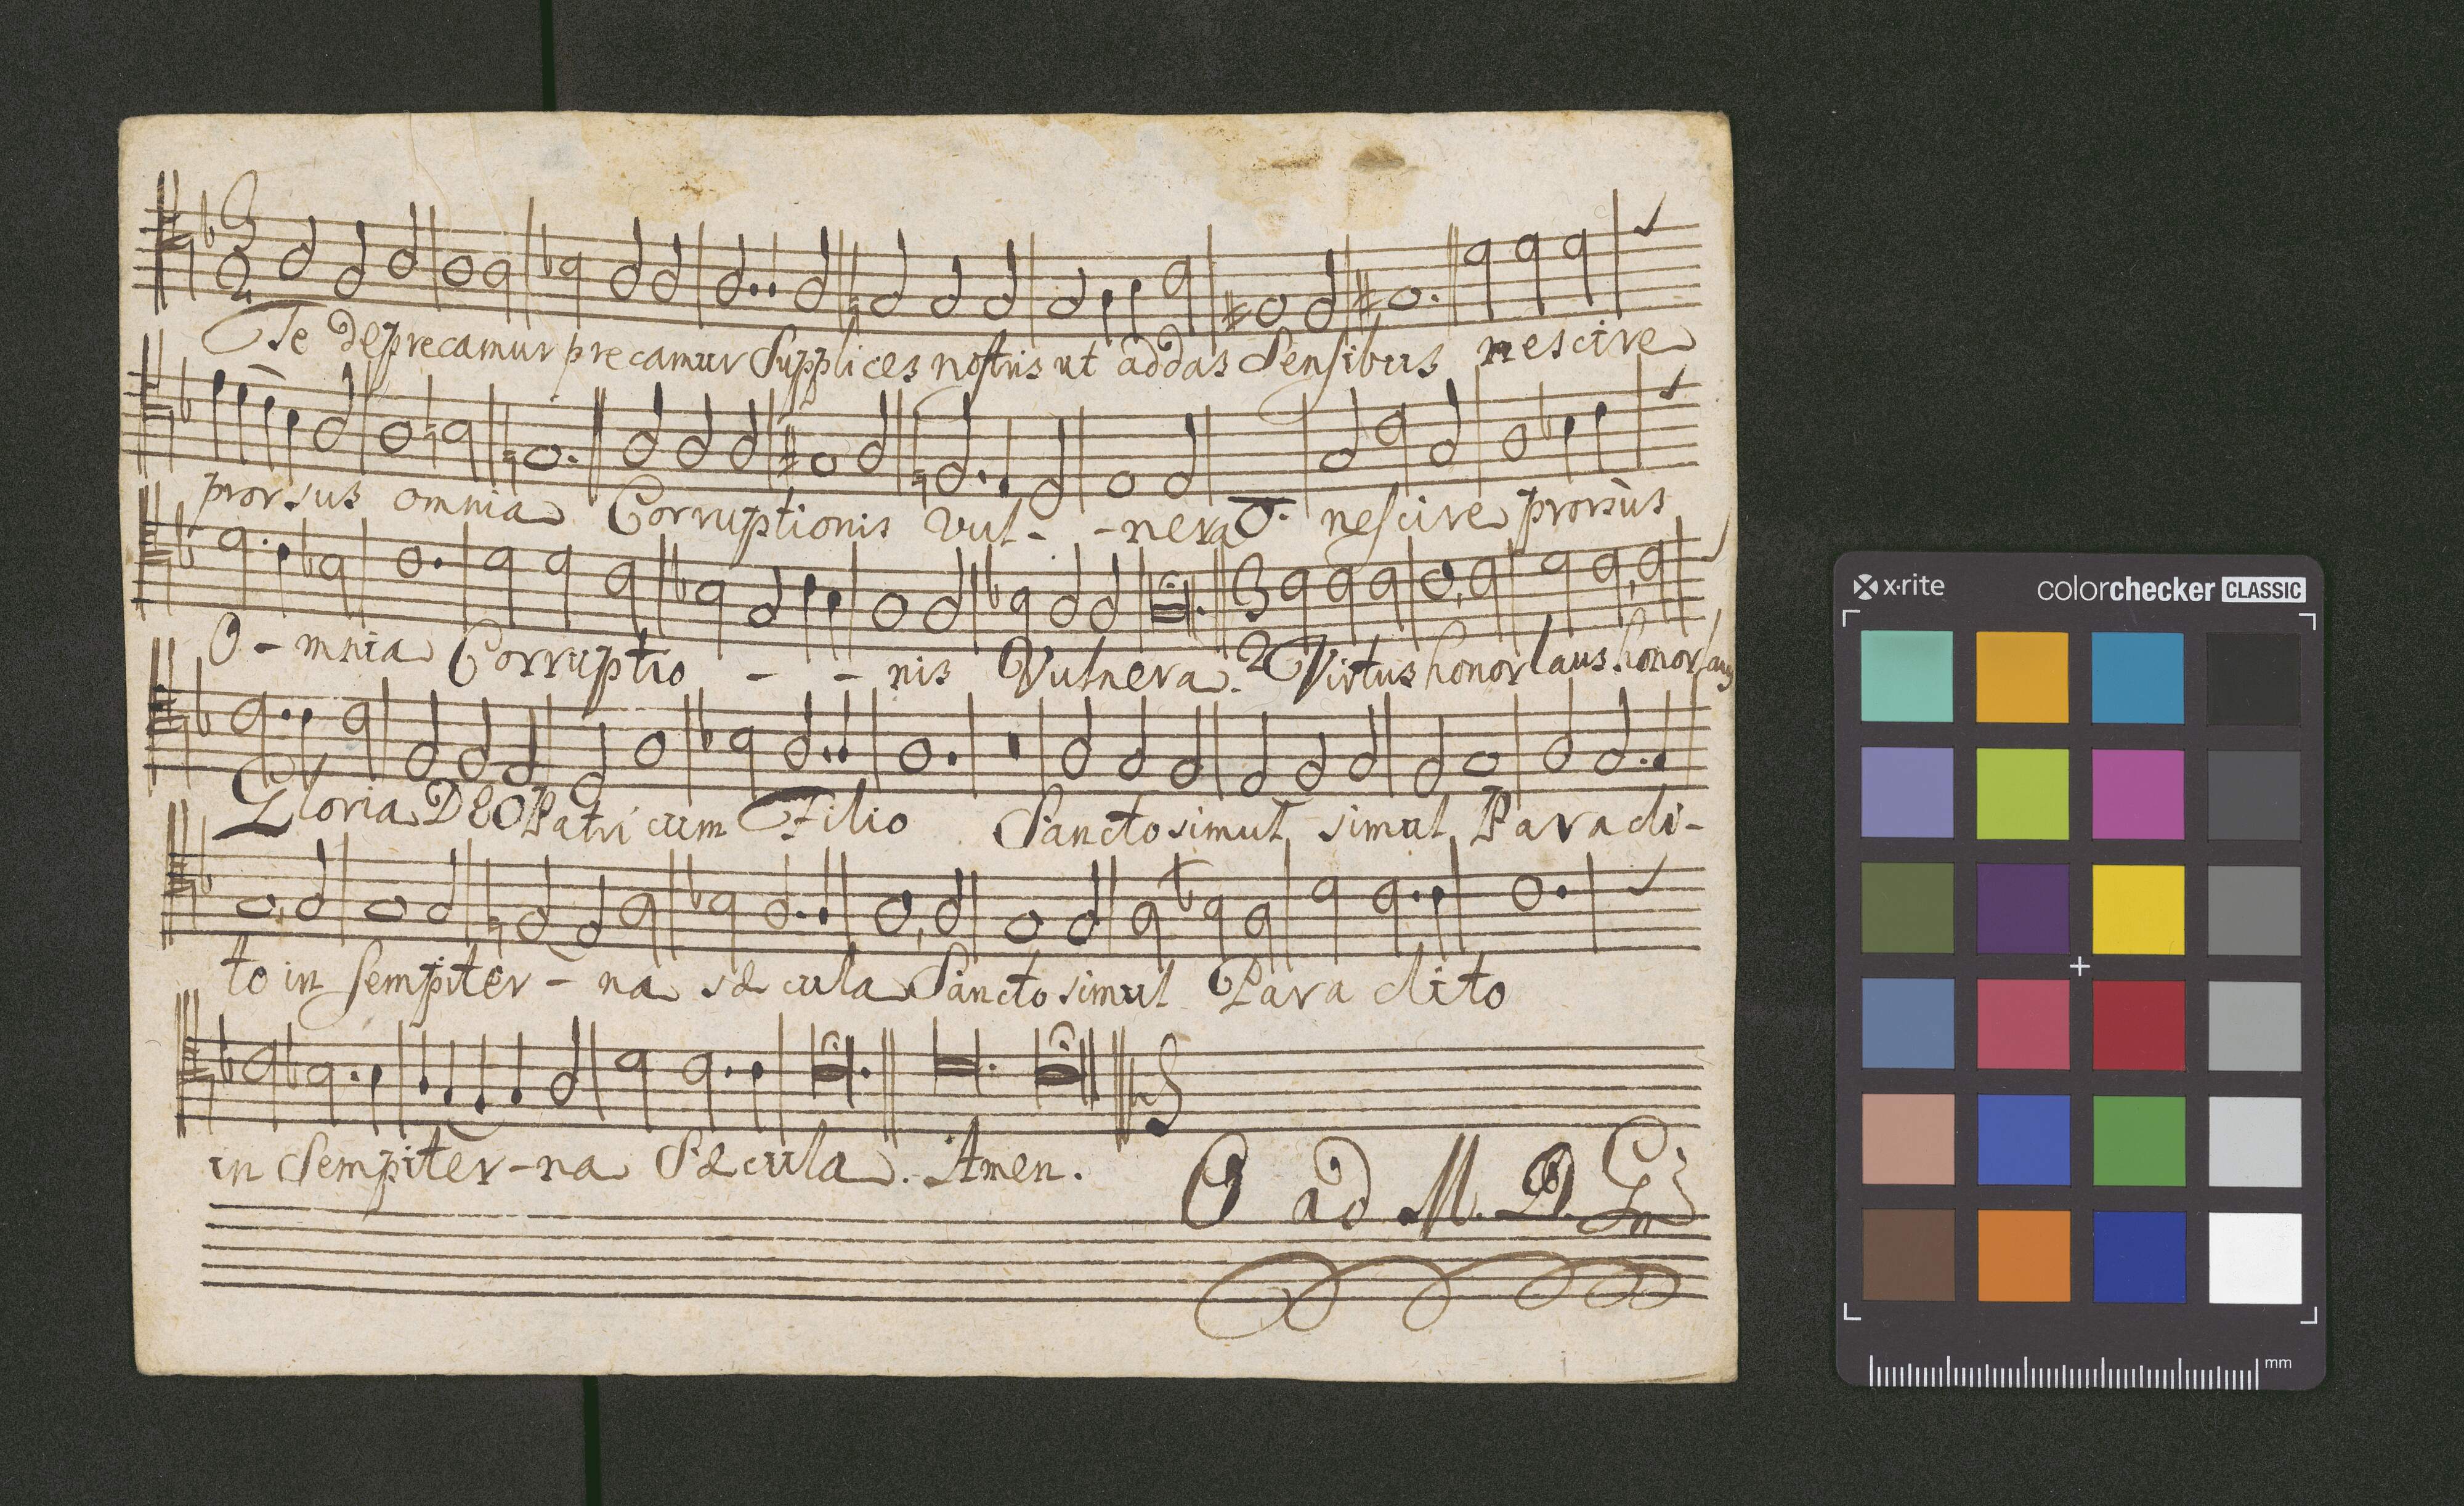 Te deprecamur precamur Supplices nostris ut addas Sensibus nescire
prorsus omnia Corruptionis vul - - nera nescire prorsùs
O - mnia Corruptio - - nis Vulnera. 2 Virtus honor laus honor laus
Gloria DEO Patri cum Filio Sancto simul simul Paracli-
to in sempiter - na sæcula Sancto simul Para clito
in Sempiter - na Sæcula. Amen.
O ad M. D. G
x-rite
colorchecker CLASSIC
mm